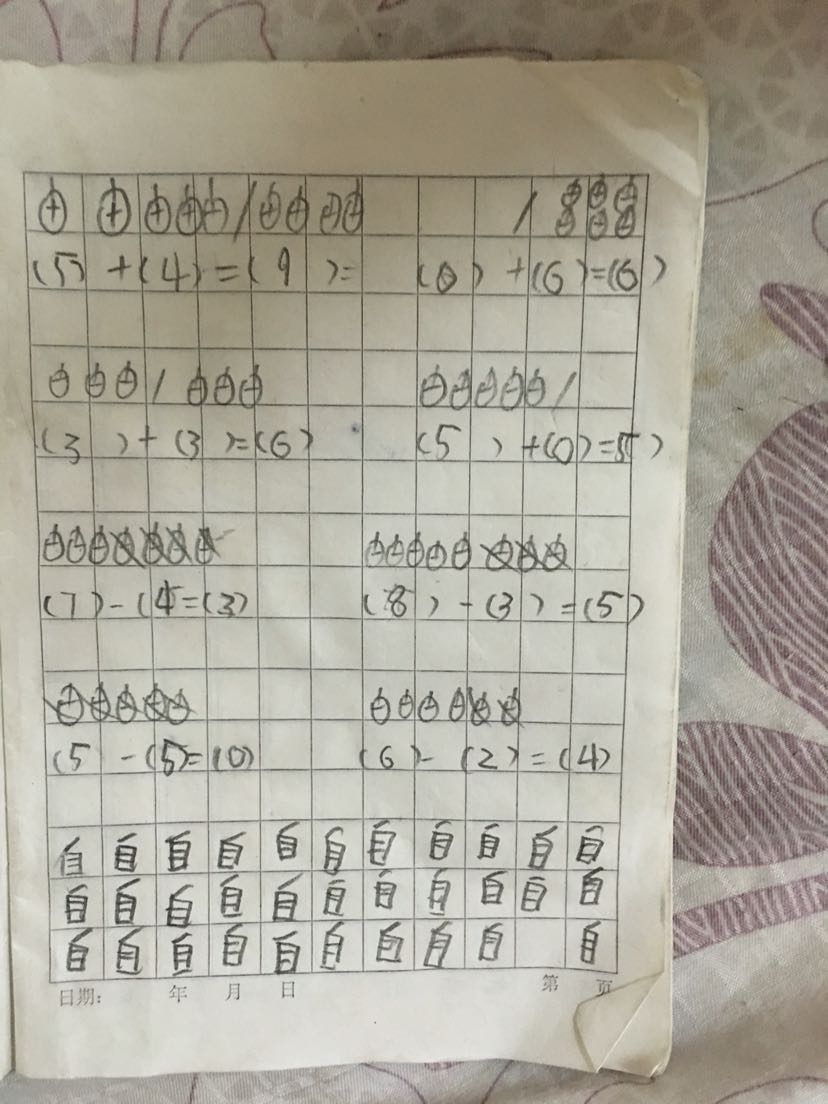 (5) + (4) = (9 ) = (0) + (6) = (6)
(3 ) + (3) = (6) (5 ) + (0) = 5)
(7) - (4 = (3) (8 ) - (3 ) = (5)
(5 - (5) = (0) (6) - (2) = (4)
自 自 自 自 自 自 自 自 自 自 自
自 自 自 自 自 自 自 自 自 自 自
自 自 自 自 自 自 自 自 自 自
日期: 年 月 日 第 页